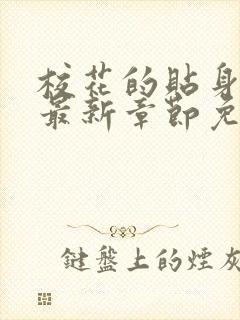 校花的貼身
最新章節免
鍵盤上的煙灰